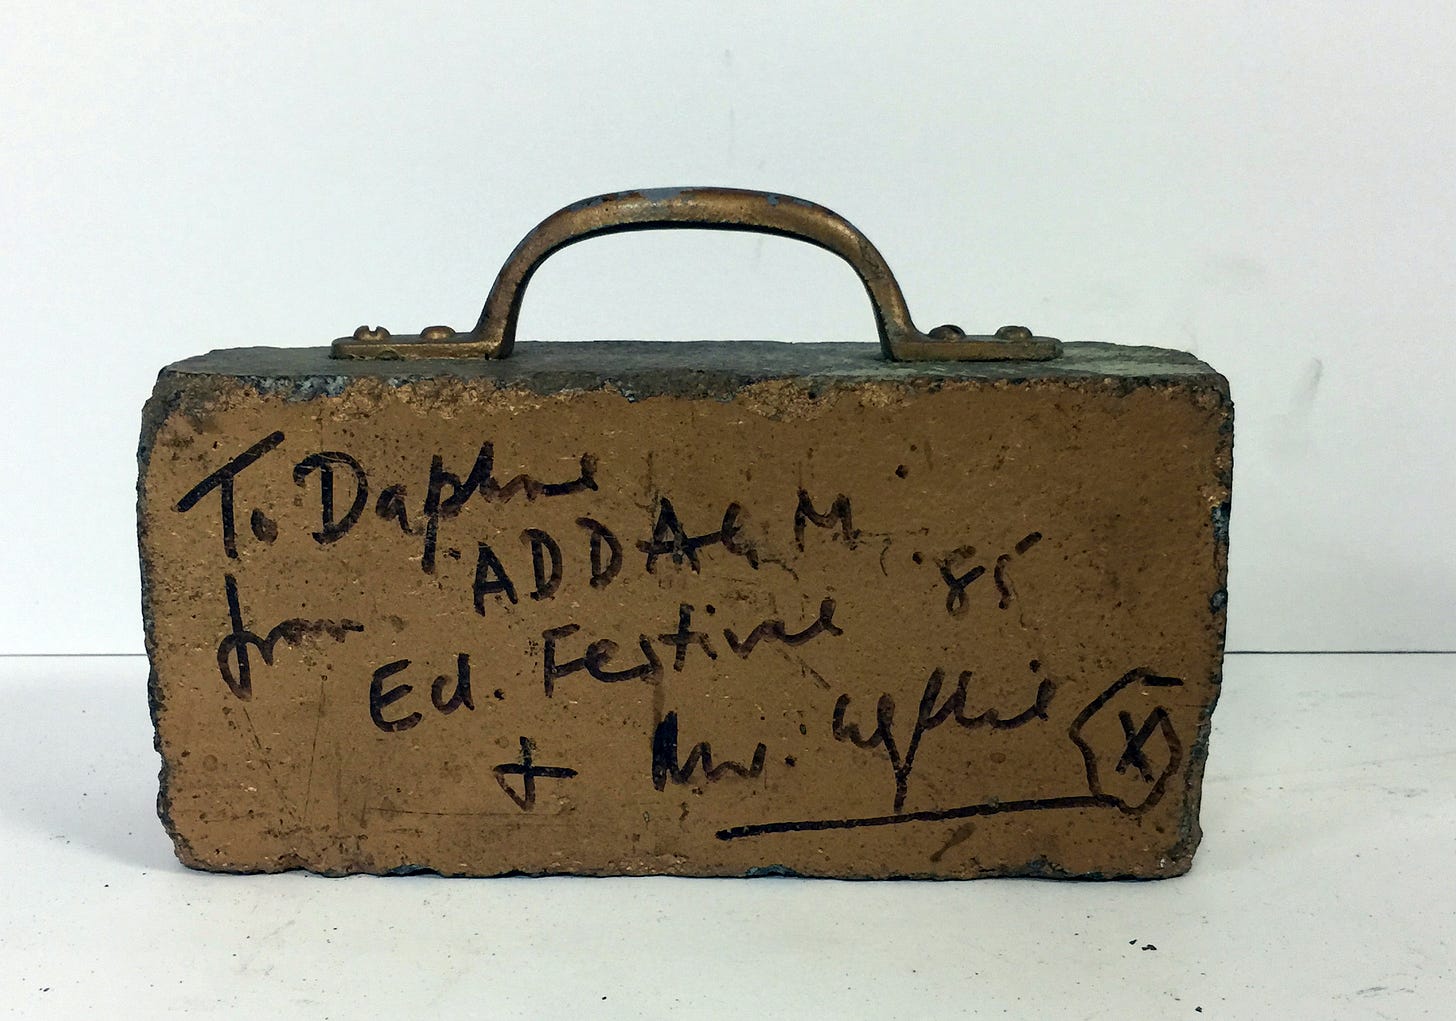 To Daphne
ADDA & M. '85
from
Ed. Festival
+
X